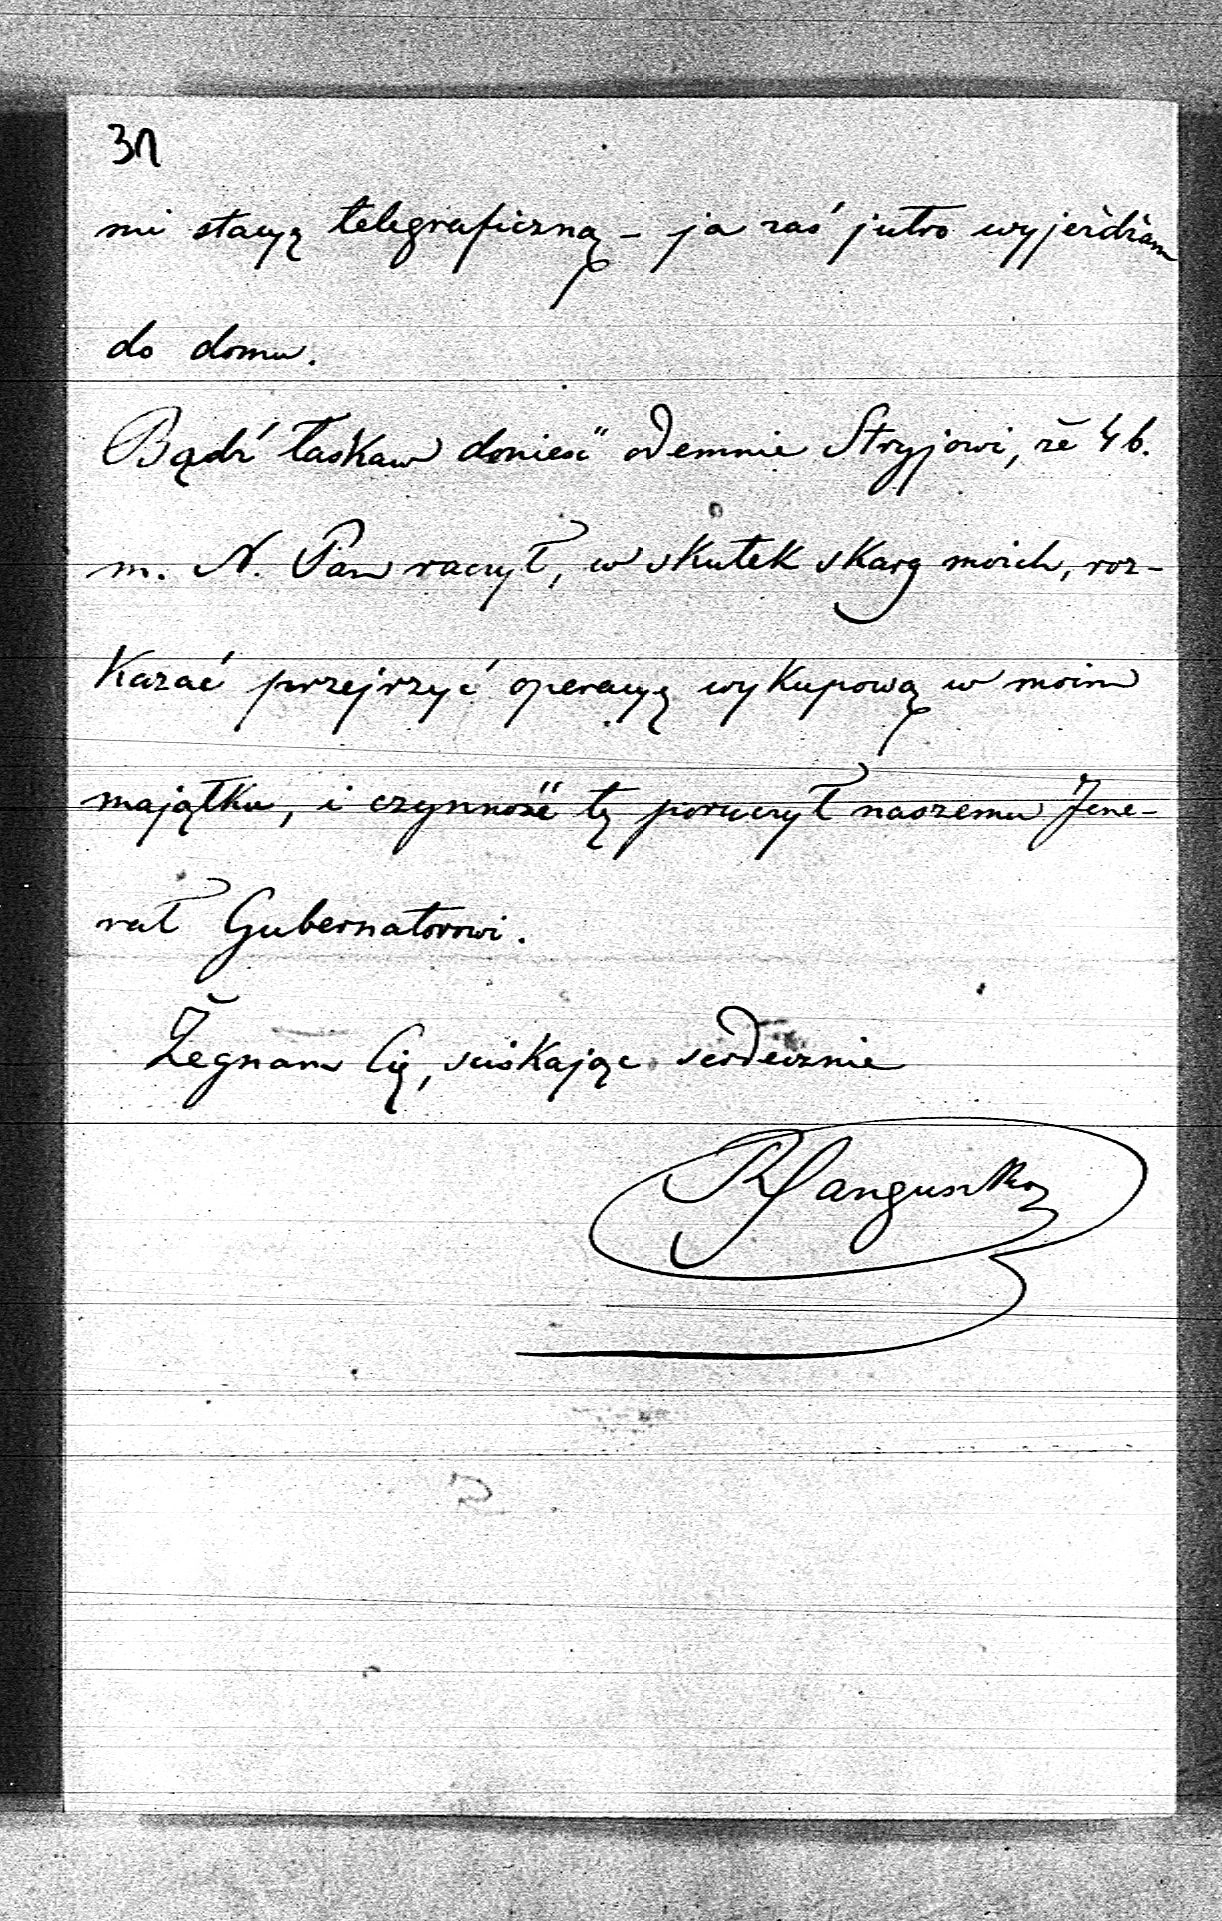 31
mi stacyą telegraficzną – ja zaś jutro wyjeżdżam
do domu.
Bądź łaskaw donieść odemnie Stryjowi, że 4 b.
m. N. Pan raczył, w skutek skarg moich, roz-
kazać przejrzyć operacyą wykupową w moim
majątku, i czynność tę poruczył naszemu Jene-
rał Gubernatorowi.
Żegnam Cię, sciskając serdecznie
RSanguszko